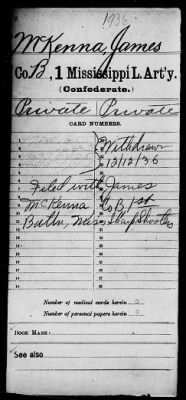 1936
McKenna, James
Co. B, 1 Mississippi L. Art'y.
(Confederate.)
Private Private
CARD NUMBERS.
Withdrawn
12/12/36
Filed with James
McKenna Co B 1st
Battn, Miss Sharp Shooters
Number of medical cards herein 0
Number of personal papers herein 0
BOOK MARK:
See also